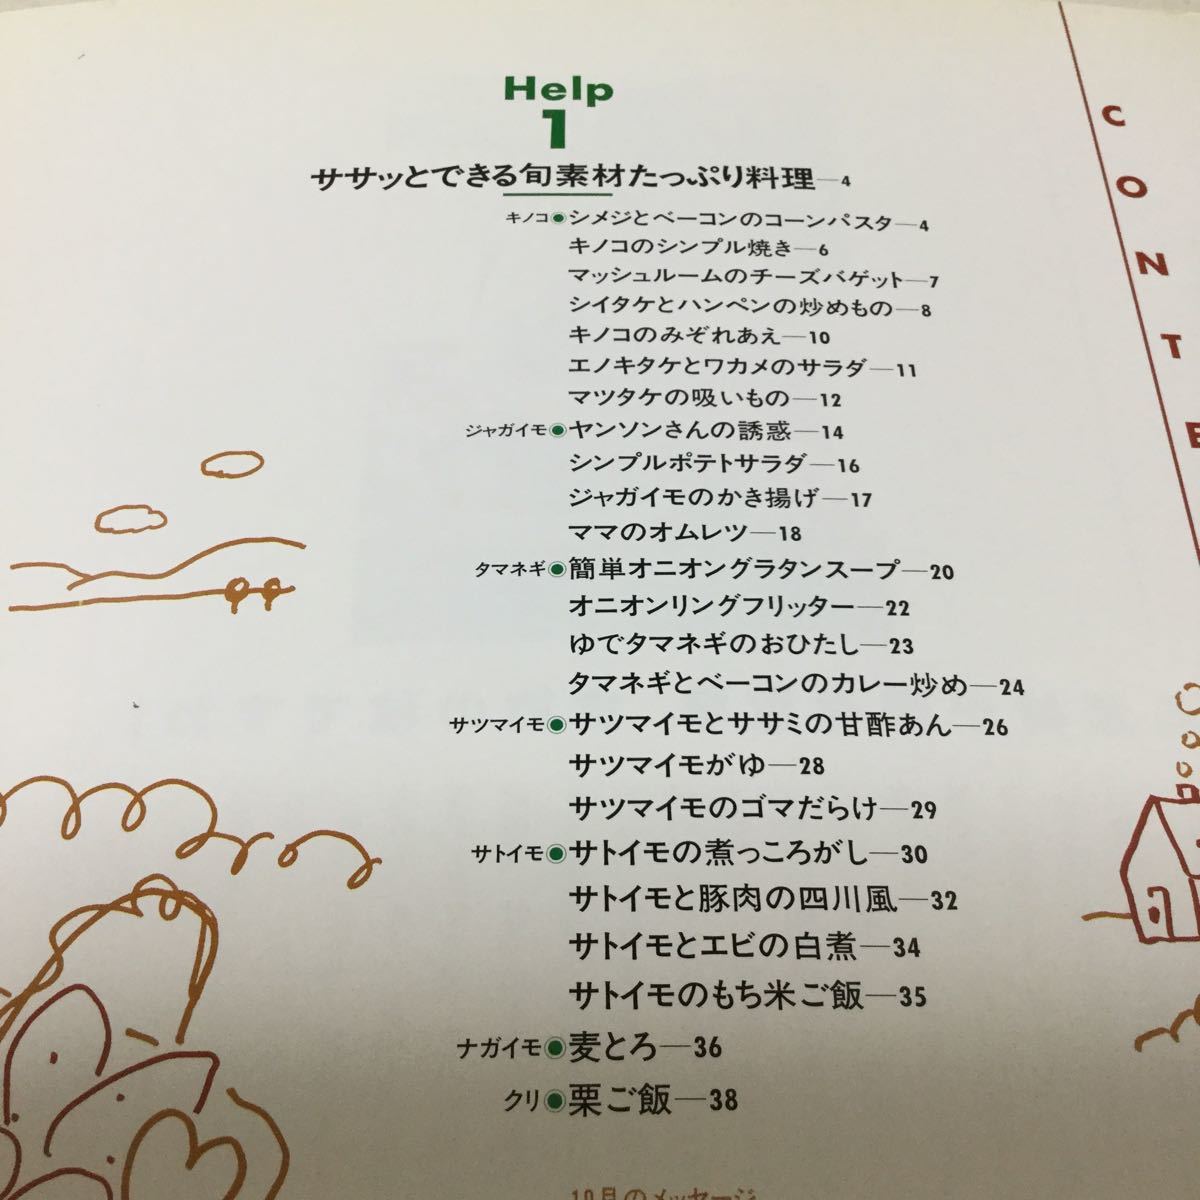 Help
1
ササッとできる旬素材たっぷり料理—4
キノコ◉シメジとベーコンのコーンパスタ—4
キノコのシンプル焼き—6
マッシュルームのチーズバゲット—7
シイタケとハンペンの炒めもの—8
キノコのみぞれあえ—10
エノキタケとワカメのサラダ—11
マツタケの吸いもの—12
ジャガイモ◉ヤンソンさんの誘惑—14
シンプルポテトサラダ—16
ジャガイモのかき揚げ—17
ママのオムレツ—18
タマネギ◉簡単オニオングラタンスープ—20
オニオンリングフリッター—22
ゆでタマネギのおひたし—23
タマネギとベーコンのカレー炒め—24
サツマイモ◉サツマイモとササミの甘酢あん—26
サツマイモがゆ—28
サツマイモのゴマだらけ—29
サトイモ◉サトイモの煮っころがし—30
サトイモと豚肉の四川風—32
サトイモとエビの白煮—34
サトイモのもち米ご飯—35
ナガイモ◉麦とろ—36
クリ◉栗ご飯—38
10月のメッセージ
CONTE